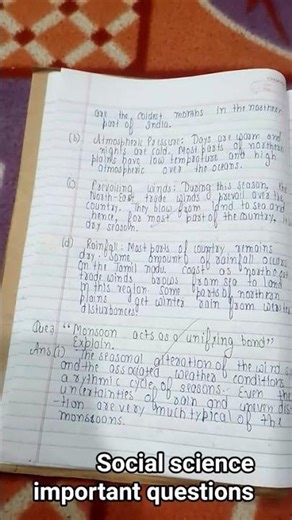 are the coldest months in the northern
part of India.
(b) Atmospheric Pressure: Days are warm and
nights are cold. Most parts of northern
plains have low temperature and high
atmospheric over the oceans.
(c) Prevailing winds: During this season, the
North-East trade winds prevail over the
country. They blow from land to sea and
hence, for most part of the country, it
dry season.
(d) Rainfall: Most parts of country remains
dry. Some amount of rainfall occurs
on the Tamil Nadu coast as north east
trade winds blows from sea to land
in this region. Some parts of northern
plains get winter rain from
disturbances.
Que 3 "Monsoon acts as a unifying bond"
Explain.
Ans (i) The seasonal alteration of the wind
and the associated weather conditions
a rythmic cycle of seasons. Even the
uncertainties of rain and uneven dis
-tion are very much typical of the
monsoons.
Social science
important questions